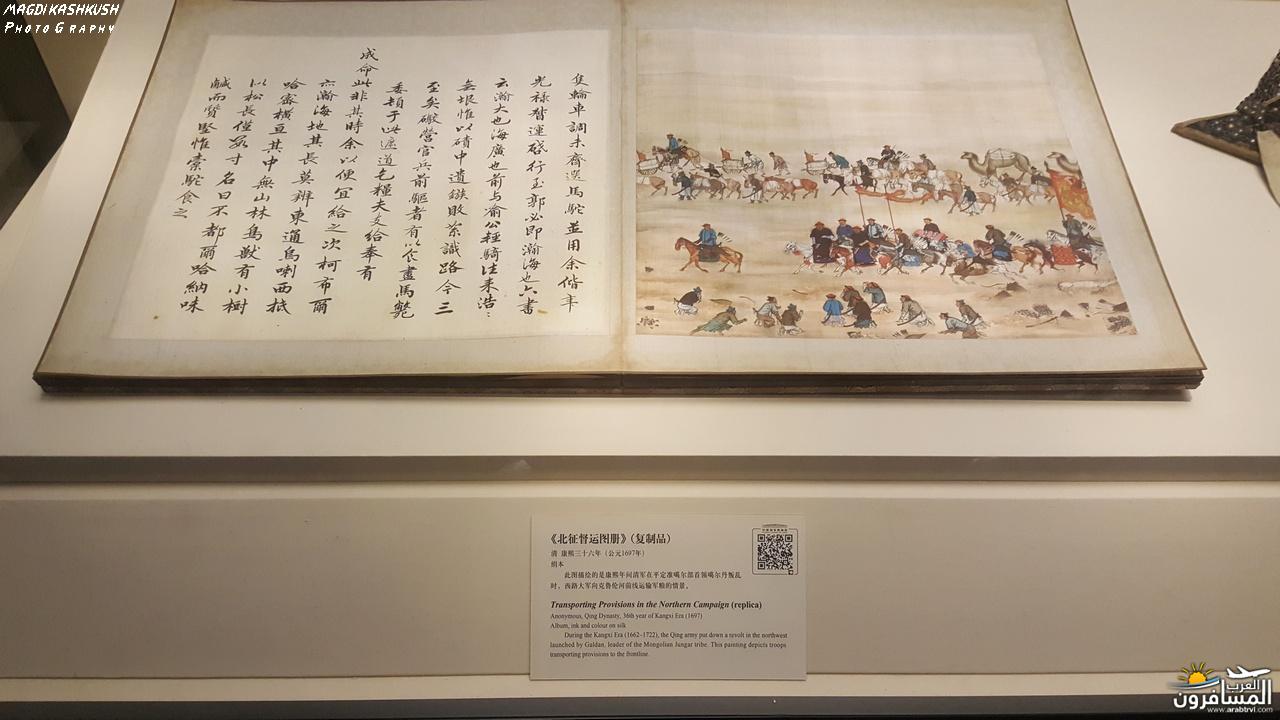 MAGDI KASHKUSH
PHOTOGRAPHY
隻輪車調未齊選馬駝並用余偕年
光祿督運礮行玉郭必即瀚海也六書
云瀚大也海廣也前与俞公輕騎往来浩〻
無垠惟以磧中遺鏃敗繠識路今三
至矣礮營官兵前驅者有以食盡馬斃
委頓于此遽道乞糧夫文給奉有
成命此非其時余以便宜給之次柯布爾
亦瀚海地其長莫辨東通烏喇西抵
哈密横亘其中無山林鳥獸有小樹
以松長僅數寸名曰不都爾哈納味
鹹而贊堅惟橐駝食之
《北征督运图册》（复制品）
清 康熙三十六年（公元1697年）
绢本
此图描绘的是康熙年间清军在平定准噶尔部首领噶尔丹叛乱
时，西路大军向克鲁伦河前线运输军粮的情景。
Transporting Provisions in the Northern Campaign (replica)
Anonymous, Qing Dynasty, 36th year of Kangxi Era (1697)
Album, ink and colour on silk
During the Kangxi Era (1662–1722), the Qing army put down a revolt in the northwest
launched by Galdan, leader of the Mongolian Jungar tribe. This painting depicts troops
transporting provisions to the frontline.
العرب
المسافرون
www.arabtrvl.com